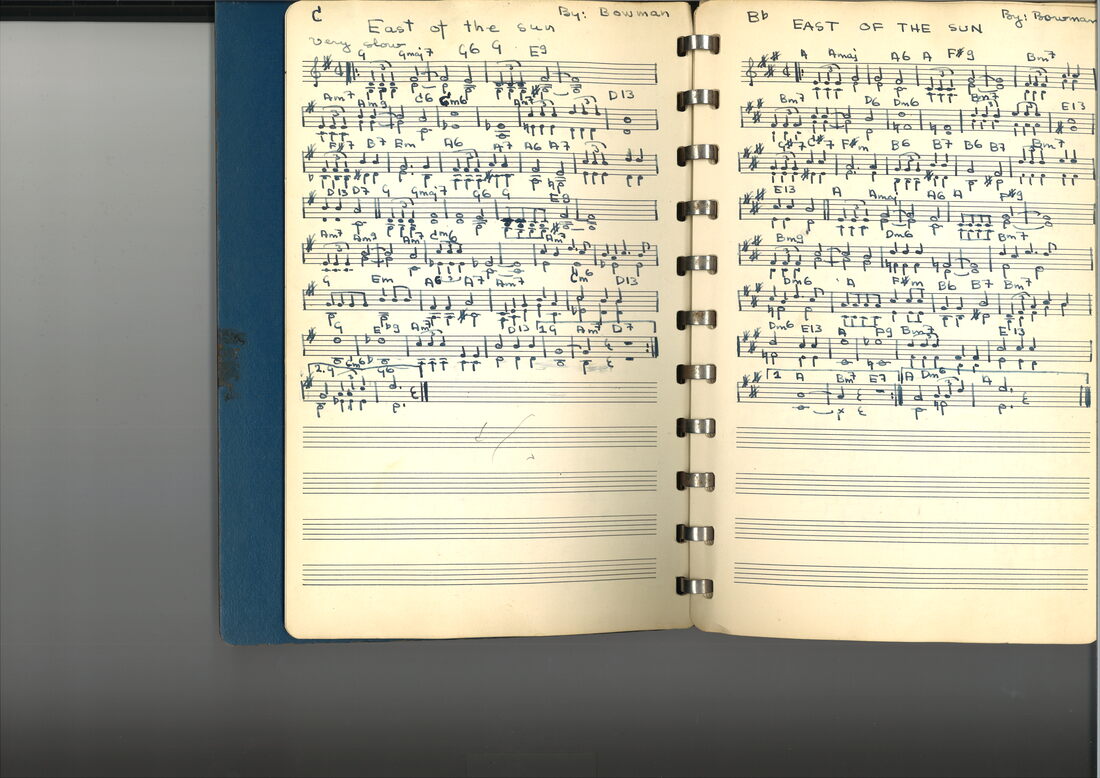 C
By: Bowman
East of the sun
very slow
G Gmaj7 G6 G E9
Am7 Am9 C6 Cm6 Am7 D13
F#7 B7 Em A6 A7 A6 A7
D13 D7 G Gmaj7 G6 G E9
Am7 Am9 Am7 Cm6 Am7
G Em A6 A7 Am7 Cm6 D13
G Am7 D13 1 G Am7 D7
2. G Cm6 G6
Bb
By: Bowman
EAST OF THE SUN
A Amaj A6 A F#9 Bm7
Bm7 D6 Dm6 Bm7 E13
G#7 C#7 F#m B6 B7 B6 B7 Bm7
E13 A Amaj A6 A F#9
Bm9 Dm6 Bm7
Dm6 A F#m B6 B7 Bm7
Dm6 E13 A Bm7 E13
1 A Bm7 E7 A Dm6 A